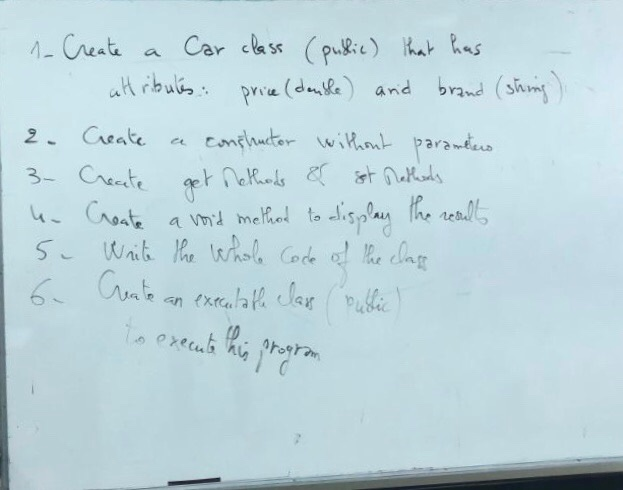 1- Create a Car class (public) that has
attributes: price (double) and brand (string)
2- Create a constructor without parameters
3- Create get Methods & set Methods
4- Create a void method to display the results
5- Write the whole code of the class
6- Create an executable class (public)
to execute this program